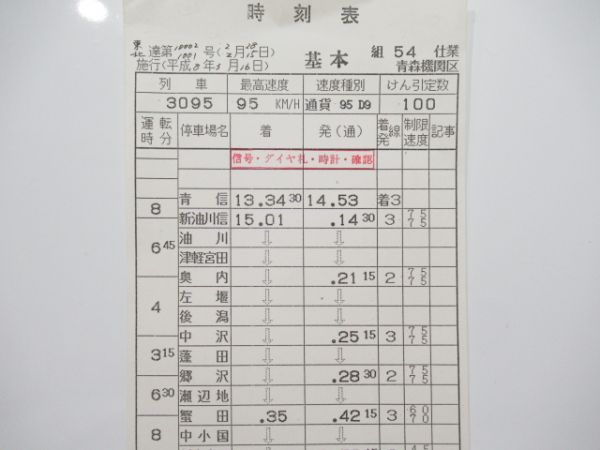 時刻表
達第 号( 月 日)
施行(平成8年3月16日)
基本 組 54 仕業
青森機関区
列車 最高速度 速度種別 けん引定数
3095 95 KM/H 通貨 95 D9 100
運転時分 停車場名 着 発(通) 着発線 制限速度 記事
信号・ダイヤ札・時計・確認
8 青信 13.34 30 14.53 着3
新油川信 15.01 .14 30 3 75 75
6 45 油川 ⇩ ⇩
津軽宮田 ⇩ ⇩
奥内 ⇩ .21 15 2 75 75
4 左堰 ⇩ ⇩
後潟 ⇩ ⇩
中沢 ⇩ .25 15 3 75 75
3 15 蓬田 ⇩ ⇩
郷沢 ⇩ .28 30 2 75 75
6 30 瀬辺地 ⇩ ⇩
蟹田 .35 .42 15 3 60 70
8 中小国 ⇩ ⇩